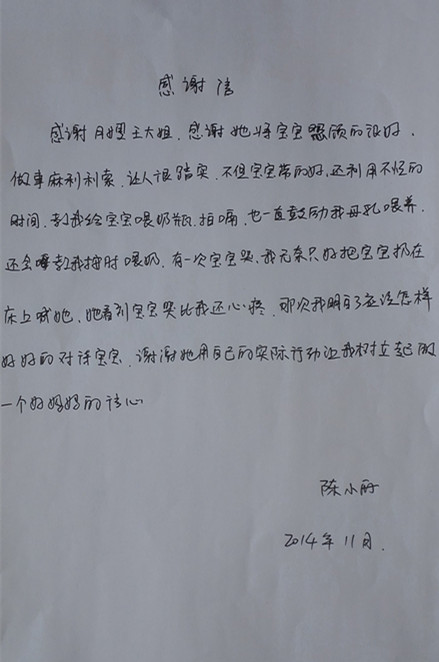 感谢信
感谢月嫂王大姐，感谢她将宝宝照顾的很好，
做事麻利利索，让人很踏实，不但宝宝带的好，还利用不忙的
时间，教我给宝宝喂奶瓶，拍嗝，也一直鼓励我母乳喂养，
还会嘱教我按时喂奶，有一次宝宝哭，我无奈只好把宝宝扔在
床上喊她，她看到宝宝哭比我还心疼，那次我明白了应该怎样
好好的对待宝宝，谢谢她用自己的实际行动让我树立起做
一个好妈妈的信心
陈小
2014年11月.